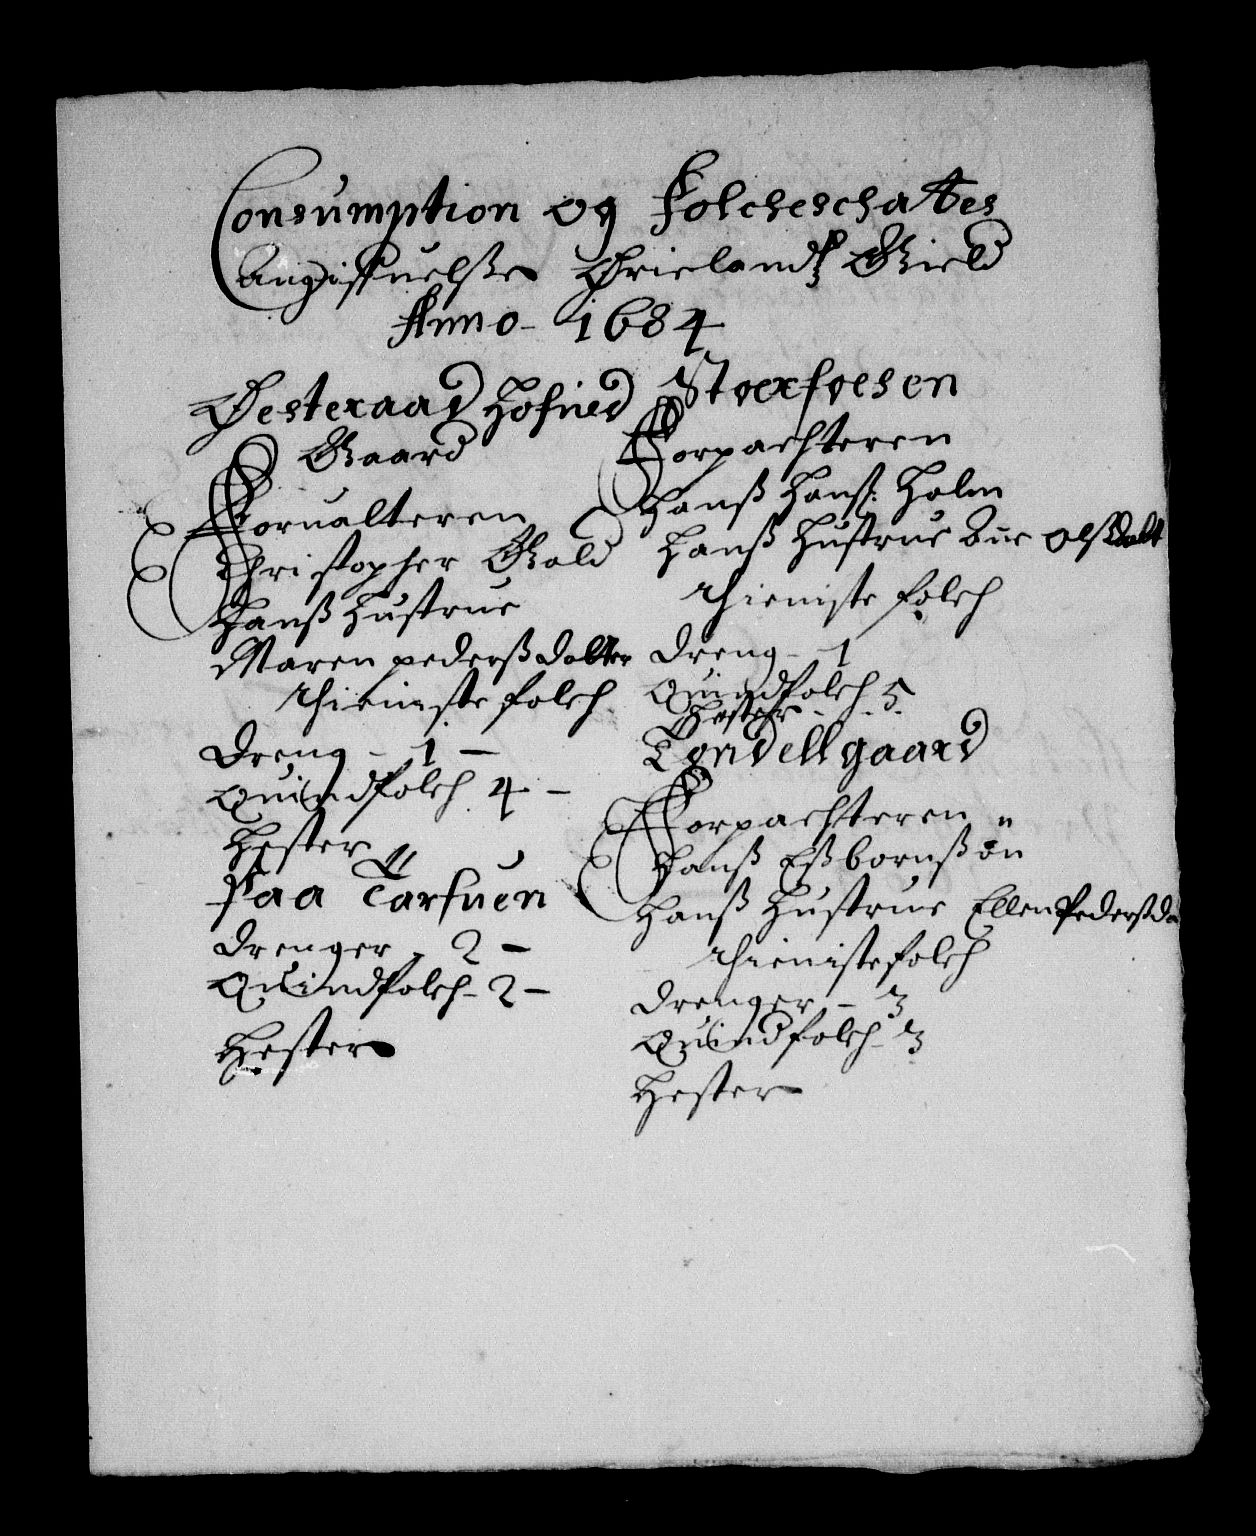 Consumption og Folcheschattes
Angifuelße Ørieland&ß Gield
Anno 1684
Øesteraad Hofued
Gaard
Forualteren
Christopher Gold
Hanß Hustrue
Maren pederßdatter
thieniste folch
Dreng - 1 -
Quindfolch 4 -
Hester
Paa Tarfuen
Drenger - 2 -
Quindfolch - 2 -
Hester
Stoerfoesen
Forpachteren
Hanß Hanß: Holm
Hanß Hustrue Olßdatt
thieniste folch
Dreng - 1
Quindfolch 5
Hester - - -
Tondellgaard
Forpachteren
Hanß Eßbornßøn
Hanß Hustrue Ellen Pederßda
thienistefolch
Drenger - 3
Quindfolch - 3
Hester